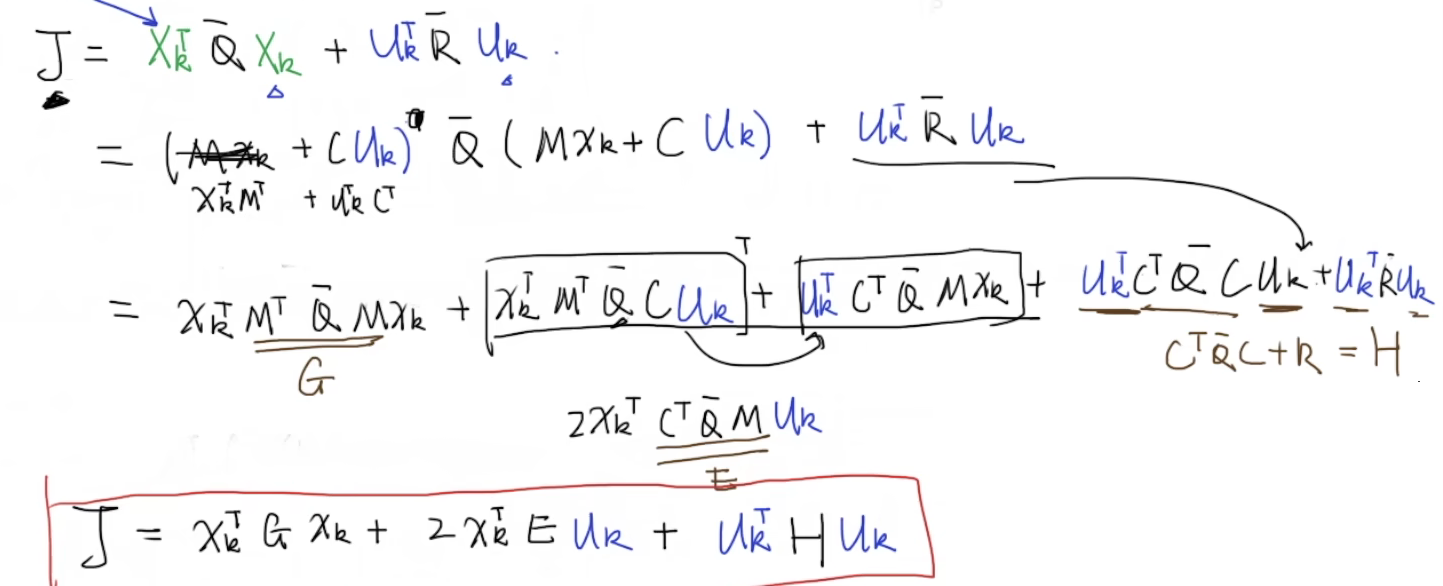 J = X_k^T Q̄ X_k + U_k^T R̄ U_k .
= (M x_k + C U_k)^T Q̄ (M x_k + C U_k) + U_k^T R̄ U_k
x_k^T M^T + U_k^T C^T
= x_k^T M^T Q̄ M x_k + [x_k^T M^T Q̄ C U_k]^T + [U_k^T C^T Q̄ M x_k] + U_k^T C^T Q̄ C U_k + U_k^T R̄ U_k
G
C^T Q̄ C + R = H
2 x_k^T C^T Q̄ M U_k
E
J = x_k^T G x_k + 2 x_k^T E U_k + U_k^T H U_k